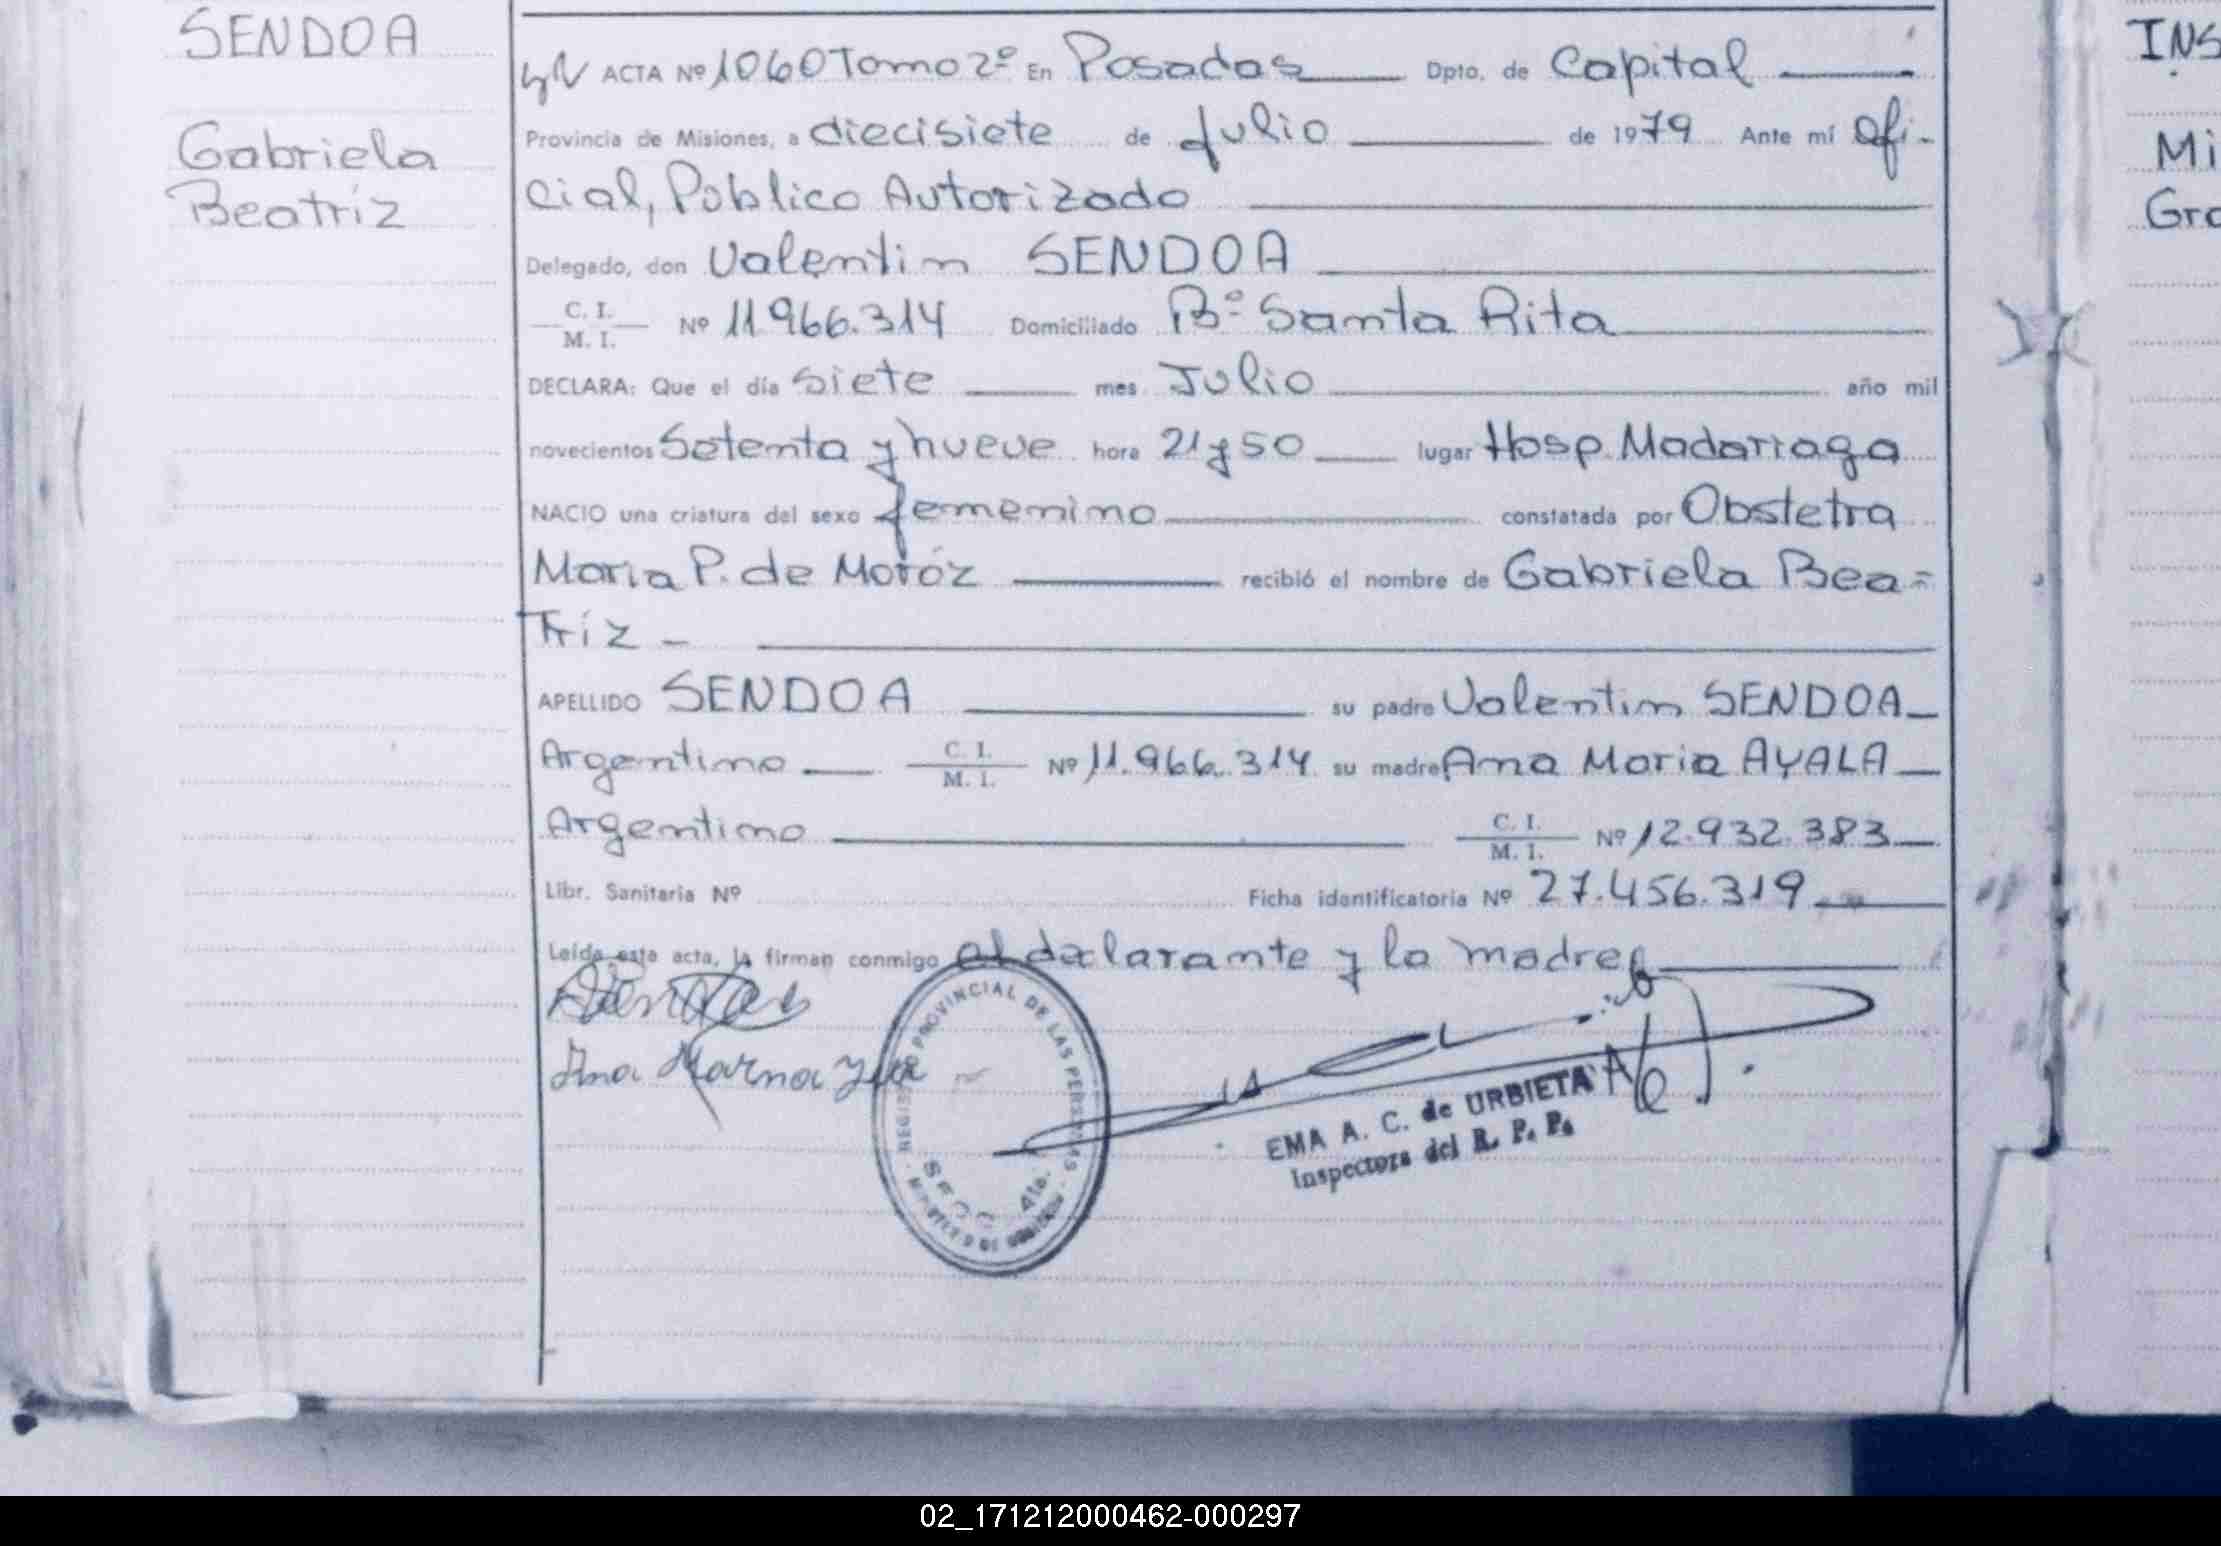 SENDOA
Gabriela
Beatríz
ACTA Nº 1060 Tomo 2º En Posadas Dpto. de Capital
Provincia de Misiones, a diecisiete de Julio de 1979 Ante mí Ofi-
cial, Publico Autorizado
Delegado, don Valentin SENDOA
C. I.
M. I. Nº 11.966.314 Domiciliado Bº Santa Rita
DECLARA: Que el día siete mes Julio año mil
novecientos Setenta y nueve hora 21 y 50 lugar Hosp. Madariaga
NACIO una criatura del sexo femenino constatada por Obstetra
Maria P. de Moróz recibió el nombre de Gabriela Bea=
tríz -
APELLIDO SENDOA su padre Valentin SENDOA
Argentino C. I.
M. I. Nº 11.966.314 su madre Ana Maria AYALA
Argentino C. I.
M. I. Nº 12.932.383
Libr. Sanitaria Nº Ficha identificatoria Nº 27.456.319
Leída esta acta, la firman conmigo el declarante y la madre
Ana
REGISTRO PROVINCIAL DE LAS PERSONAS
SECC. 4ta.
MINISTERIO DE GOBIERNO
EMA A. C. de URBIETA
Inspectora del R. P. P.
INS
Mi
Gra
02_171212000462-000297